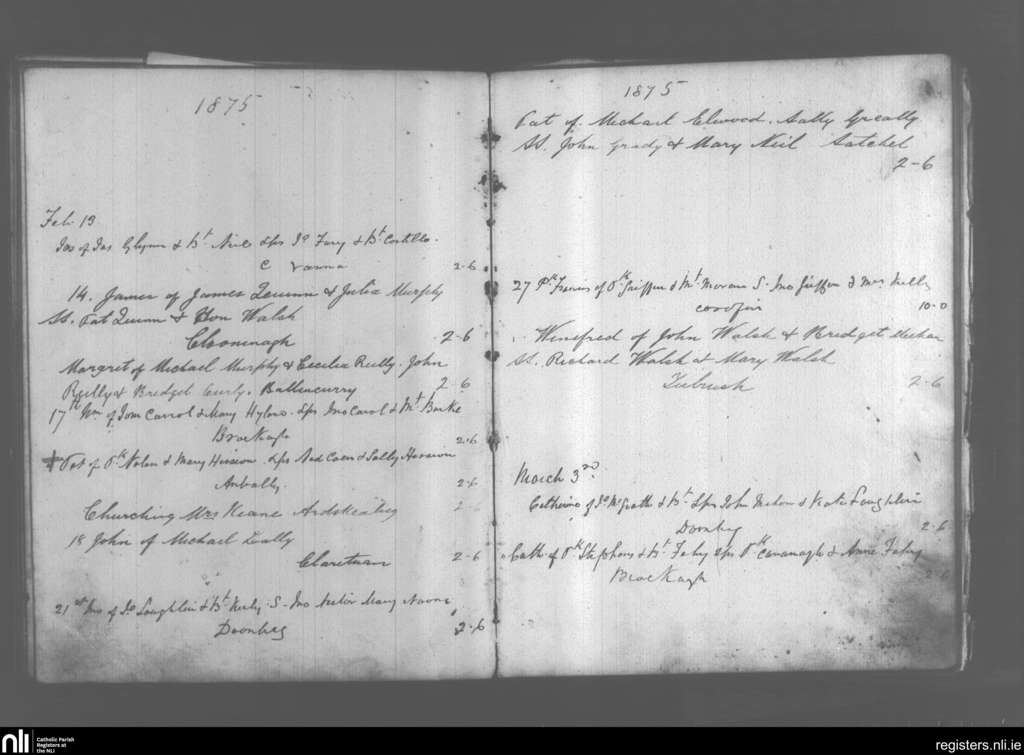 1875
Feb 13
Jas of Jas Glynn & Bt Neil Sps Jo Fury & Bt Costello.
C 2-6
14. James of James Quinn & Julia Murphy
SS. Pat Quinn & Hon Walsh
Clooninagh 2-6
Margret of Michael Murphy & Cecilia Reilly. John
Reilly & Bridget Curly. Ballincurry 2-6
17th Wm of Tom Carrol & Mary Hynes. Sps Jno Carol & Mt Burke
Brockagh 2-6
Pat of Pk Nolan & Mary Hession. Sps Ned Coen & Sally Hession
Anbally 2-6
Churching Mrs Keane Ardskeabeg 2-6
18 John of Michael Lally
Claretuam 2-6
21st Jno of Jo Loughlin & Bt Kirby. S. Jno Mary
Doonbeg 2-6
1875
Pat of Michael Elwood. Sally Greally
SS. John Grady & Mary Neil Satchel
2-6
27 Pk Francis of Pk Griffin & Mt Moran S. Jno Griffin & Mrs Kelly
corofin 10-0
Winefred of John Walsh & Bridget Meehan
SS. Richard Walsh & Mary Walsh
2-6
March 3rd
Catherine of Jo McGrath & Bt Sps John & Kate Loughlin
Doonbeg 2-6
Cath of Pk Stephens & Bt Fahy Sps Pk Cavanagh & Anne Fahy
Brockagh 2-6
nli
Catholic Parish
Registers at
the NLI
registers.nli.ie